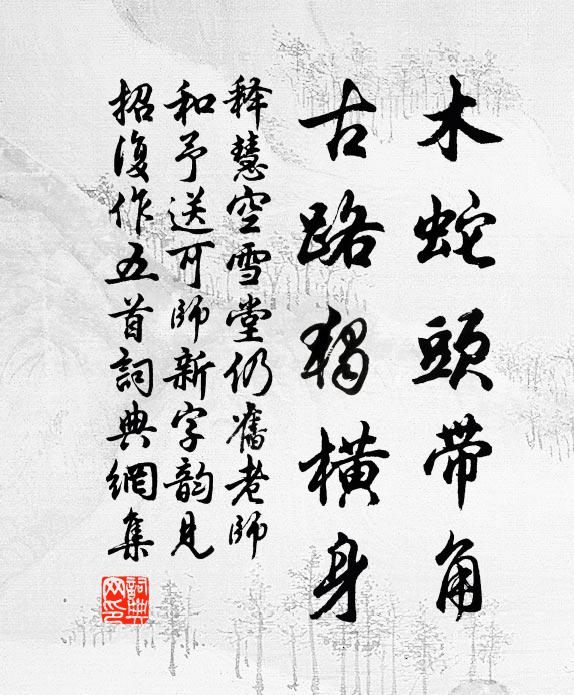 木蛇頭带角
古路獨橫身
释慧空雪堂仍舊老師
和予送可師新字韵見
招復作五首詞典網集
詞典
网印